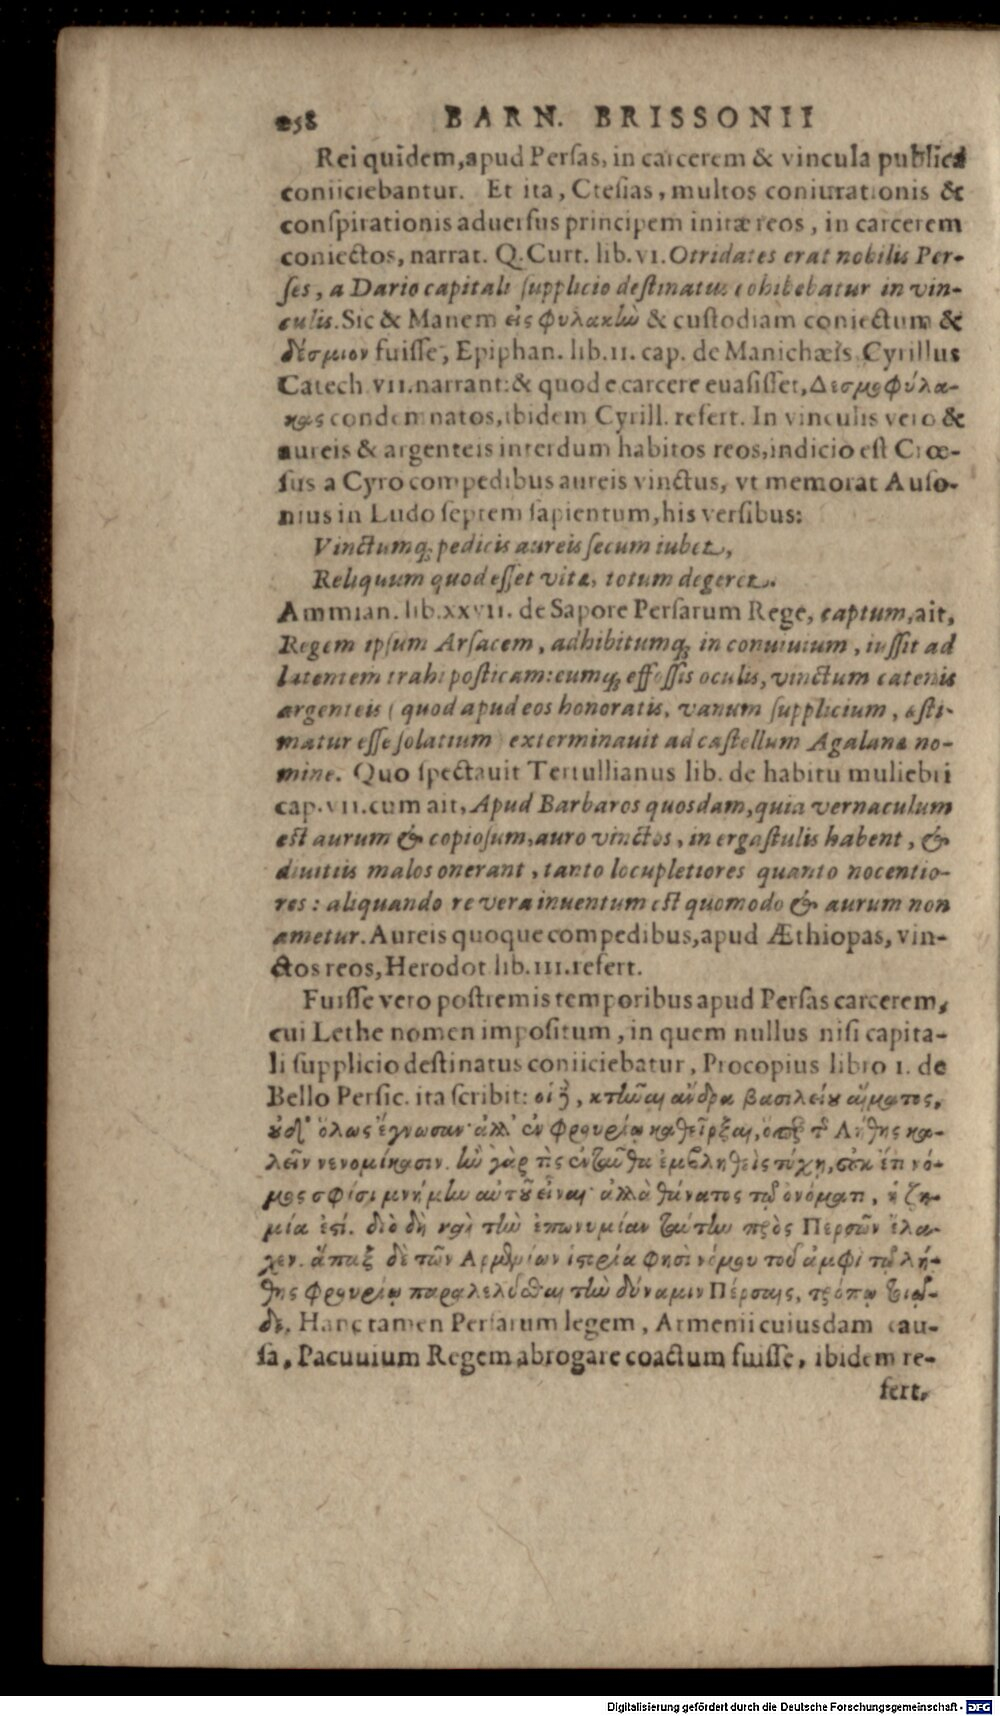 258 BARN. BRISSONII
Rei quidem, apud Persas, in carcerem & vincula publica
coniiciebantur. Et ita, Ctesias, multos coniurationis &
conspirationis aduersus principem initæ reos, in carcerem
coniectos, narrat. Q. Curt. lib. VI. Otridates erat nobilis Per-
ses, a Dario capitali supplicio destinatus cohibebatur in vin-
culis. Sic & Manem εἰς φυλακὴν & custodiam coniectum &
δέσμιον fuisse, Epiphan. lib. II. cap. de Manichæis Cyrillus
Catech VII. narrant: & quod e carcere euasisset, Δεσμοφύλα-
κας condemnatos, ibidem Cyrill. refert. In vinculis vero &
aureis & argenteis interdum habitos reos, indicio est Crœ-
sus a Cyro compedibus aureis vinctus, vt memorat Auso-
nius in Ludo septem sapientum, his versibus:
Vinctumq; pedicis aureis secum iubet,
Reliquum quod esset vitæ, totum degeret.
Ammian. lib. XXVII. de Sapore Persarum Rege, captum, ait,
Regem ipsum Arsacem, adhibitumq; in conuiuium, iussit ad
latentem trahi posticam: eumq; effossis oculis, vinctum catenis
argenteis (quod apud eos honoratis, vanum supplicium, æsti-
matur esse solatium) exterminauit ad castellum Agalana no-
mine. Quo spectauit Tertullianus lib. de habitu muliebri
cap. VII. cum ait, Apud Barbaros quosdam, quia vernaculum
est aurum & copiosum, auro vinctos, in ergastulis habent, &
diuitiis malos onerant, tanto locupletiores quanto nocentio-
res: aliquando re vera inuentum est quomodo & aurum non
ametur. Aureis quoque compedibus, apud Æthiopas, vin-
ctos reos, Herodot lib. III. refert.
Fuisse vero postremis temporibus apud Persas carcerem,
cui Lethe nomen impositum, in quem nullus nisi capita-
li supplicio destinatus coniiciebatur, Procopius libro I. de
Bello Persic. ita scribit: οἱ δὲ, κτῶσι ἄνδρα βασιλείου αἵματος,
οὐδ' ὅλως ἔγνωσαν· ἀλλ' ἐν φρουρίῳ καθεῖρξαι, ὅπερ τῆς Λήθης κα-
λεῖν νενομίκασιν. ἢν γάρ τις ἐνταῦθα ἐμβληθεὶς τύχῃ, οὐκ ἔτι νό-
μος σφίσι μνήμην αὐτοῦ εἶναι· ἀλλὰ θάνατος τῷ ὀνόματι, ἡ ζη-
μία ἐστί. διὸ δὴ καὶ τὴν ἐπωνυμίαν ταύτην πρὸς Περσῶν ἔλα-
χεν. ἅπαξ δὲ τῶν Ἀρμενίων ἱστορία φησὶ νόμου τοῦ ἀμφὶ τῷ λή-
θης φρουρίῳ παραλελύσθαι τὴν δύναμιν Πέρσαις, τρόπῳ τοιῷ-
δε. Hanc tamen Persarum legem, Armenii cuiusdam cau-
sa, Pacuuium Regem abrogare coactum fuisse, ibidem re-
fert.
Digitalisierung gefördert durch die Deutsche Forschungsgemeinschaft - DFG